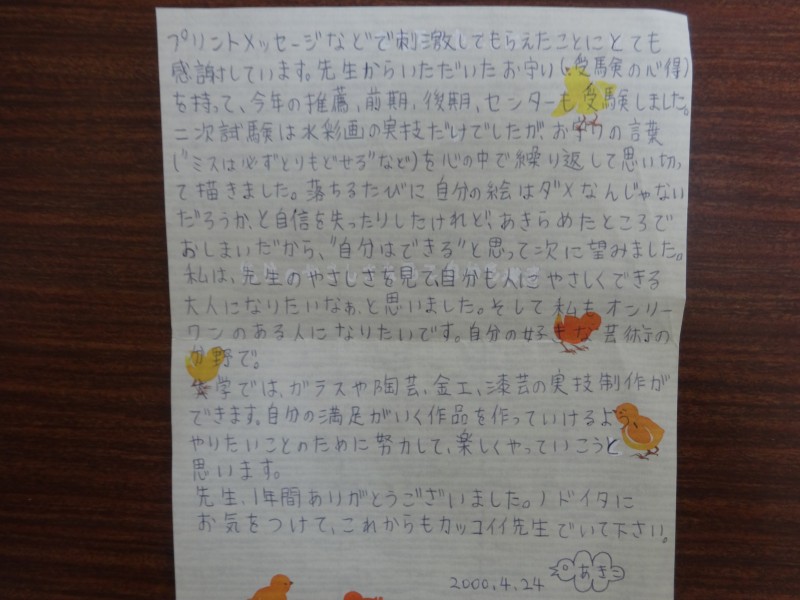 プリントメッセージなどで刺激してもらえたことにとても
感謝しています。先生からいただいたお守り(:受験の心得)
を持って、今年の推薦、前期、後期、センターも受験しました。
二次試験は水彩画の実技だけでしたが、お守りの言葉
("ミスは必ずとりもどせる"など)を心の中で繰り返して思い切っ
て描きました。落ちるたびに自分の絵はダメなんじゃない
だろうか、と自信を失ったりしたけれど、あきらめたところで
おしまいだから、"自分はできる"と思って次に望みました。
私は、先生のやさしさを見て、自分も人にやさしくできる
大人になりたいなぁ、と思いました。そして私もオンリー
ワンのある人になりたいです。自分の好きな芸術の
分野で。
大学では、ガラスや陶芸、金工、漆芸の実技制作が
できます。自分の満足がいく作品を作っていけるよう、
やりたいことのために努力して、楽しくやっていこうと
思います。
先生、1年間ありがとうございました。ノドイタに
お気をつけて、これからもカッコイイ先生でいて下さい。
2000.4.24 あきこ